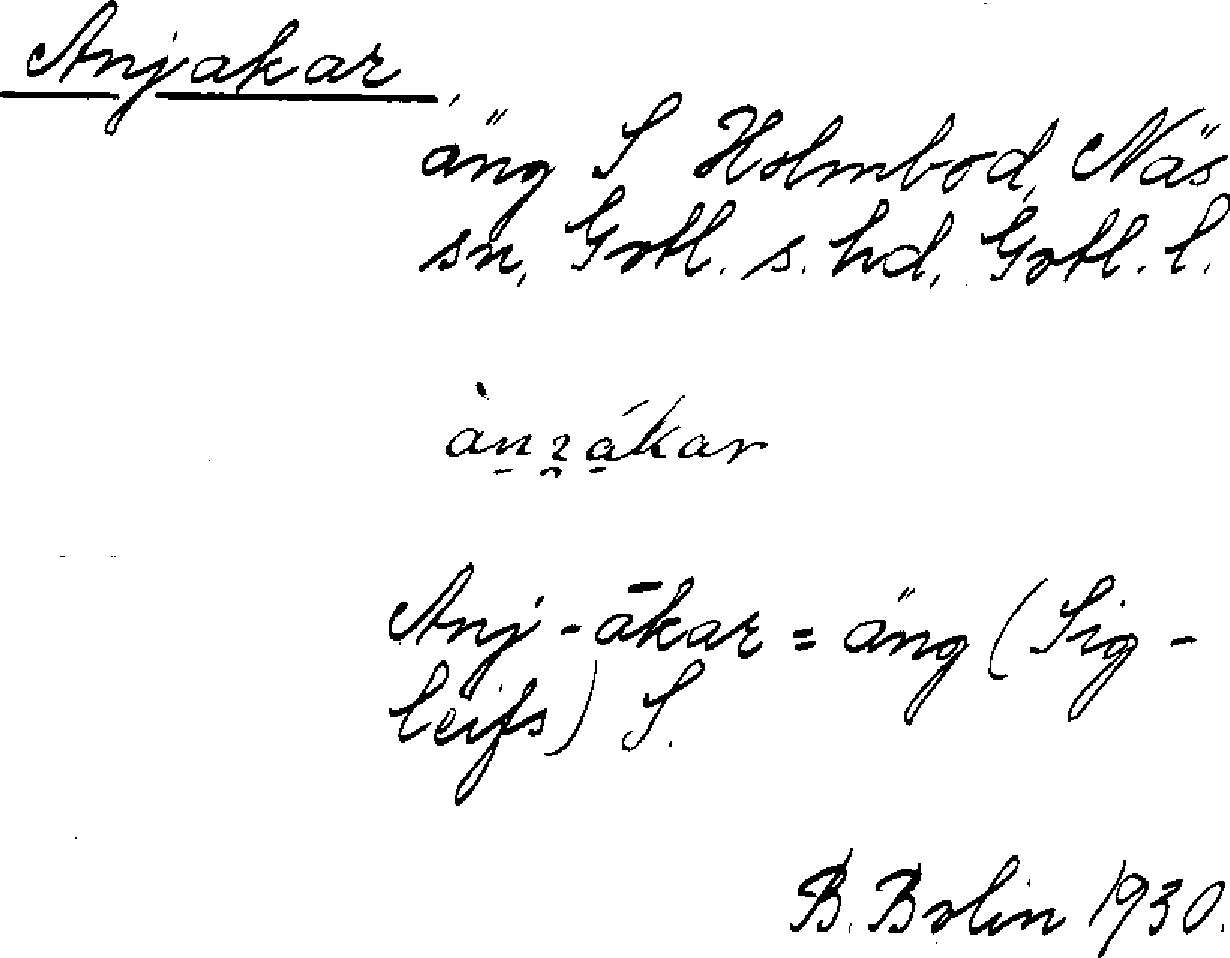 Anjakar,
äng S Holmbod, Näs
sn, Gotl. s. hd, Gotl. l.
Anj-ākar = äng (Sig-
leifs) S.
B. Bolin 1930.